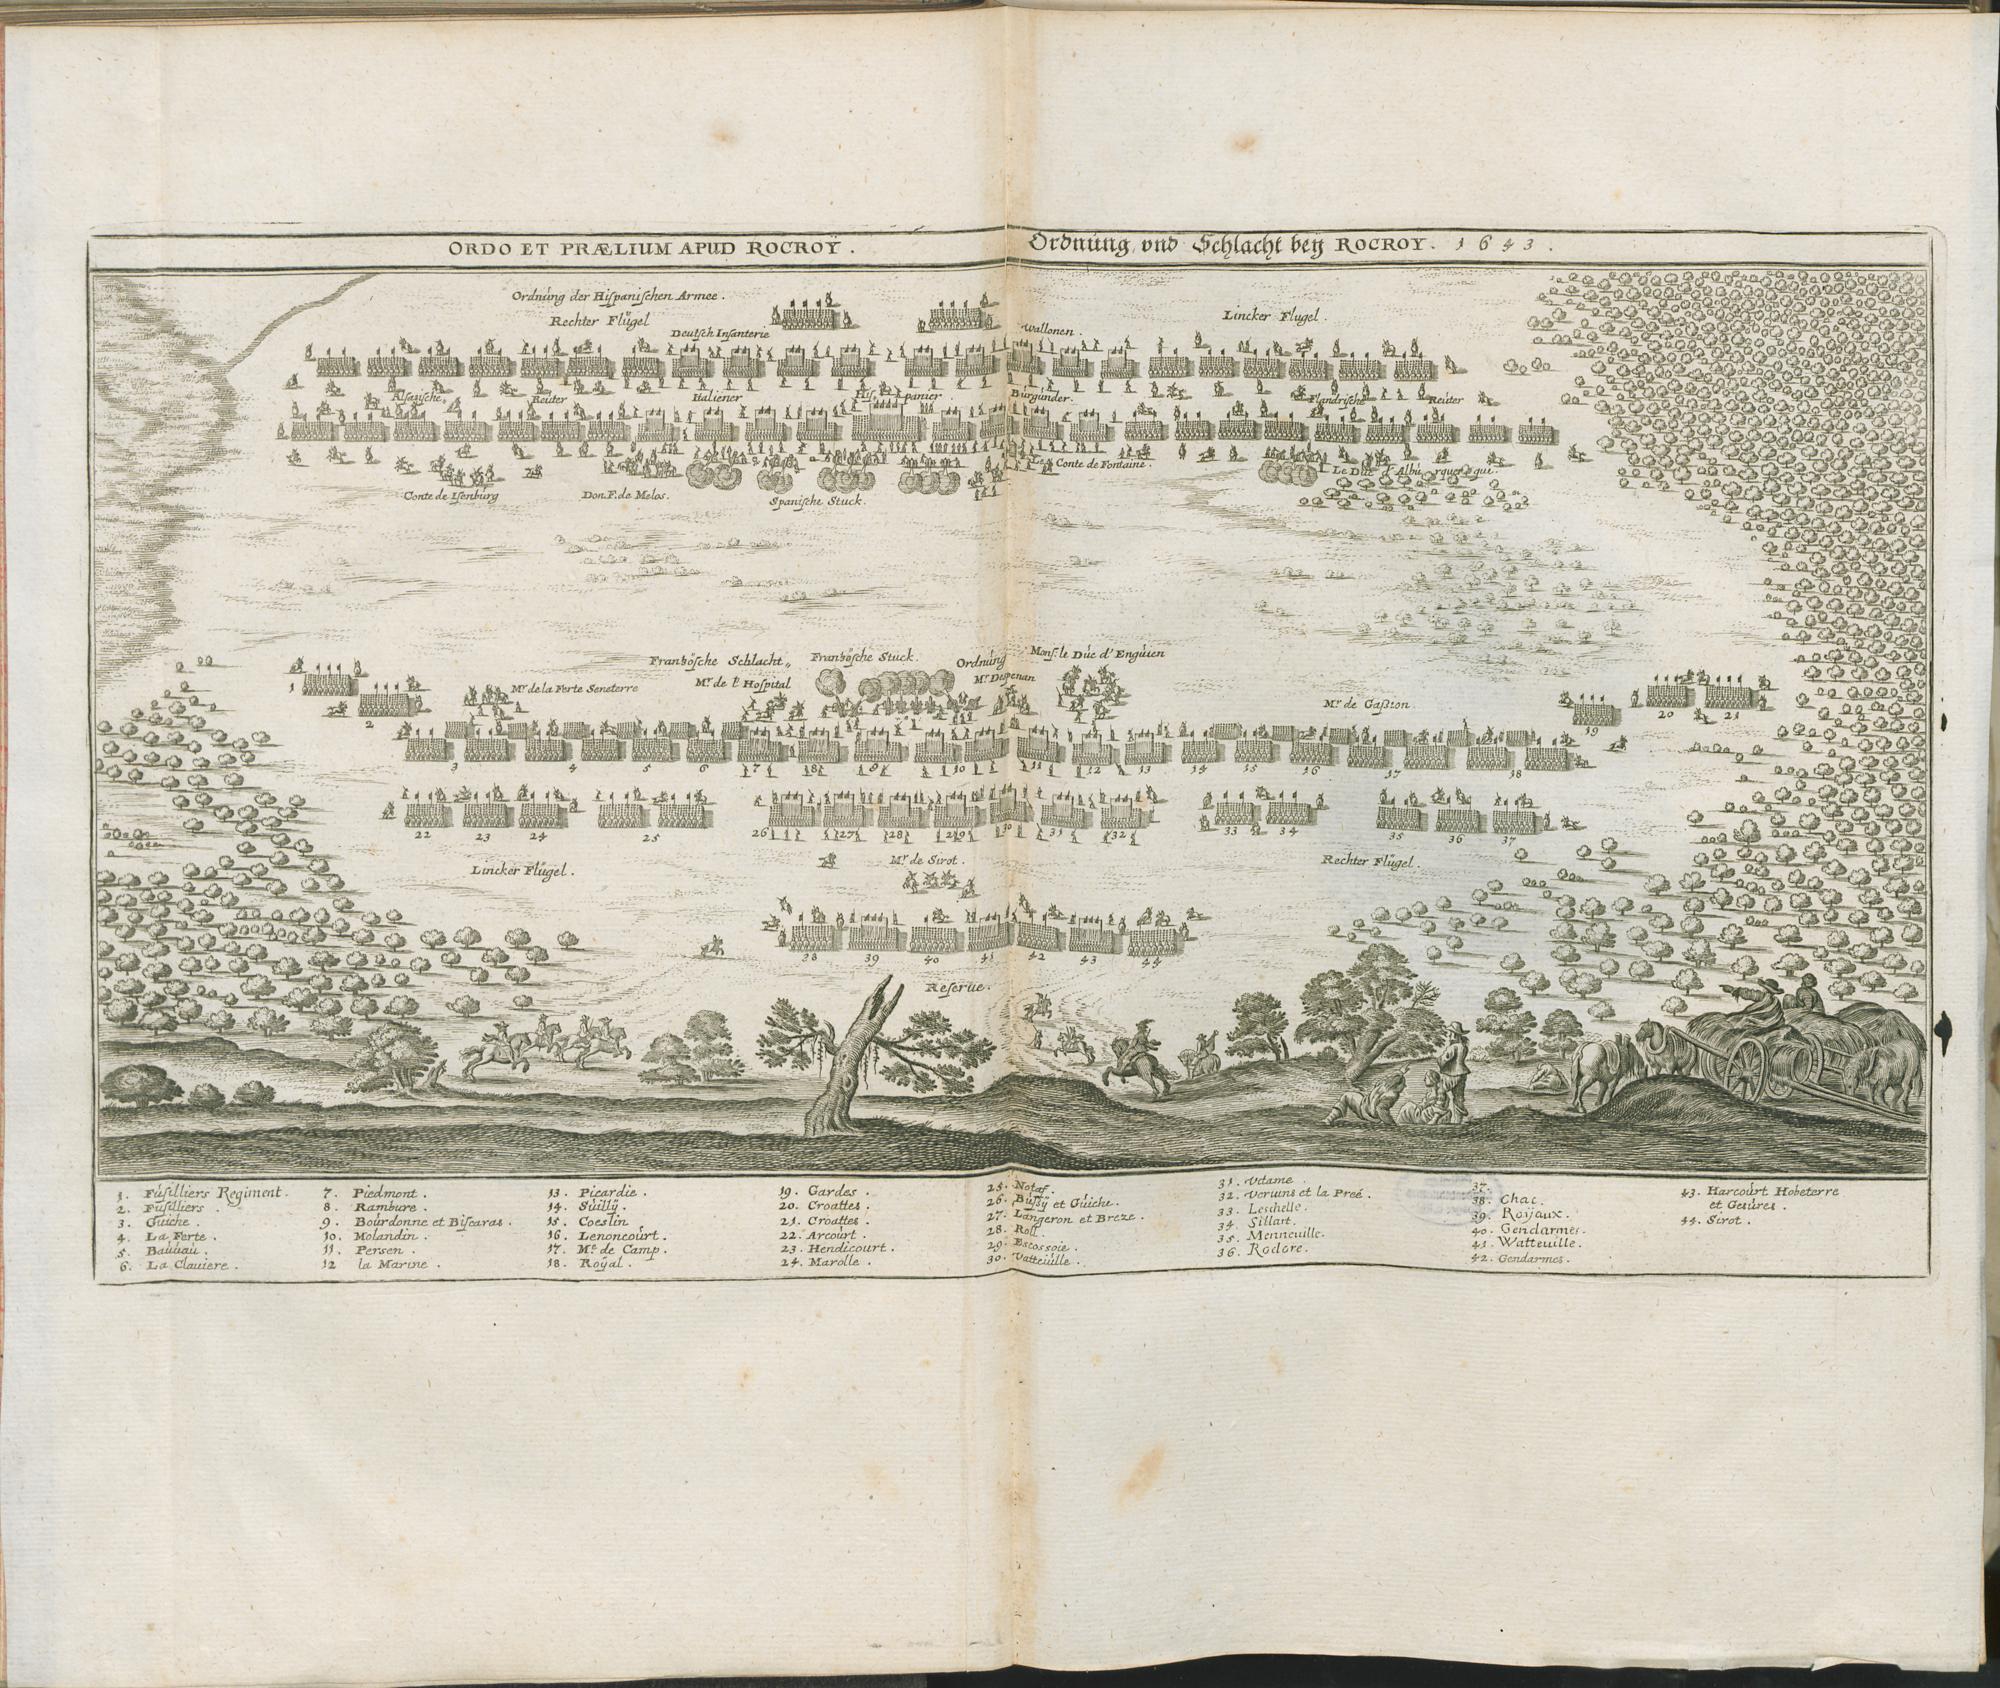 ORDO ET PRÆLIUM APUD ROCROŸ.
Ordnung vnd Schlacht beÿ ROCROY. 1643.
Ordnúng der Hiſpaniſchen Armee.
Rechter Flúgel
Lincker Flugel.
Deutſch Infanterie
Wallonen.
Alſaſiſche
Reúter
Italiener
Hiſpanier.
Búrgúnder.
Flandriſche
Reúter
Conte de Iſenbúrg
Don F. de Melos.
Spaniſche Stuck.
Le Conte de Fontaine.
Le Duc d'Albúrquerque.
Franßöſche Schlacht„
Ordnúng
Franßöſche Stuck.
Monſ. le Dúc d'Engúien
Mr. de la Ferte Seneterre
Mr. de l'Hoſpital
Mr. Deſpenan
Mr. de Gaßion.
1 2 19 20 21
3 4 5 6 7 8 9 10 11 12 13 14 15 16 17 18
22 23 24 25 26 27 28 29 30 31 32 33 34 35 36 37
Lincker Flúgel.
Mr. de Sirot.
Rechter Flúgel.
38 39 40 41 42 43 44
Reſerúe.
1. Fúſilliers Regiment.
2. Fúſilliers.
3. Gúiche.
4. La Ferte.
5. Baúúaú.
6. La Clauiere.
7. Piedmont.
8. Rambure.
9. Boúrdonne et Biſcaras.
10. Molandin.
11. Perſen.
12 la Marine.
13. Picardie.
14. Súillÿ.
15. Coeslin
16. Lenoncoúrt.
17. Mr. de Camp.
18. Roÿal.
19. Gardes.
20. Croattes.
21. Croattes.
22. Arcoúrt.
23. Hendicourt.
24. Marolle.
25. Notaf.
26. Búſſÿ et Gúiche.
27. Langeron et Breze.
28. Roll.
29. Escossoie.
30. Vatteúille.
31. Vdame.
32. Veruins et la Preé.
33. Leschelle.
34. Sillart.
35. Menneuille.
36. Roclore.
37.
38. Chac.
39. Roÿaux.
40. Gendarmes.
41. Watteuille.
42. Gendarmes.
43. Harcoúrt Hobeterre
et Geſúres.
44. Sirot.